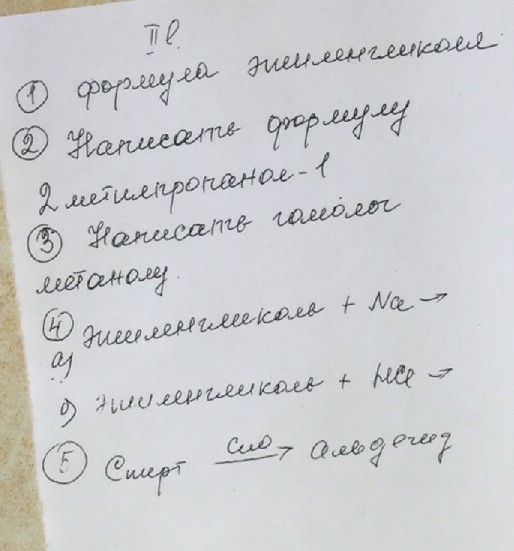 II в.
① формула этиленгликоля
② Написать формулу
2 метилпропанол-1
③ Написать гомолог
метанолу.
④ этиленгликоль + Na →
а)
б) этиленгликоль + HCl →
⑤ Спирт CuO → альдегид